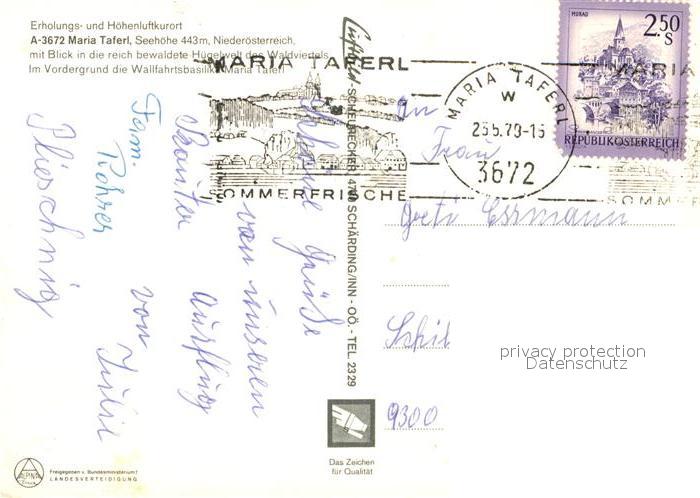 Erholungs- und Höhenluftkurort
A-3672 Maria Taferl, Seehöhe 443m, Niederösterreich,
mit Blick in die reich bewaldete Hügelwelt des Waldviertels
Im Vordergrund die Wallfahrtsbasilika Maria Taferl
MARIA TAFERL
SOMMERFRISCHE
MARIA TAFERL
w
3672
MURAU
2.50
S
REPUBLIK ÖSTERREICH
MARIA
SOMMER
Schöne Grüße
von unseren
Ausflug
von
Fam. Rohrer
Plieschnig
SCHÄRDING/INN - OÖ. - TEL 2329
An
Frau
Greti Essmann
9300
privacy protection
Datenschutz
Das Zeichen
für Qualität
ALPINA
Freigegeben v. Bundesministerium f.
LANDESVERTEIDIGUNG